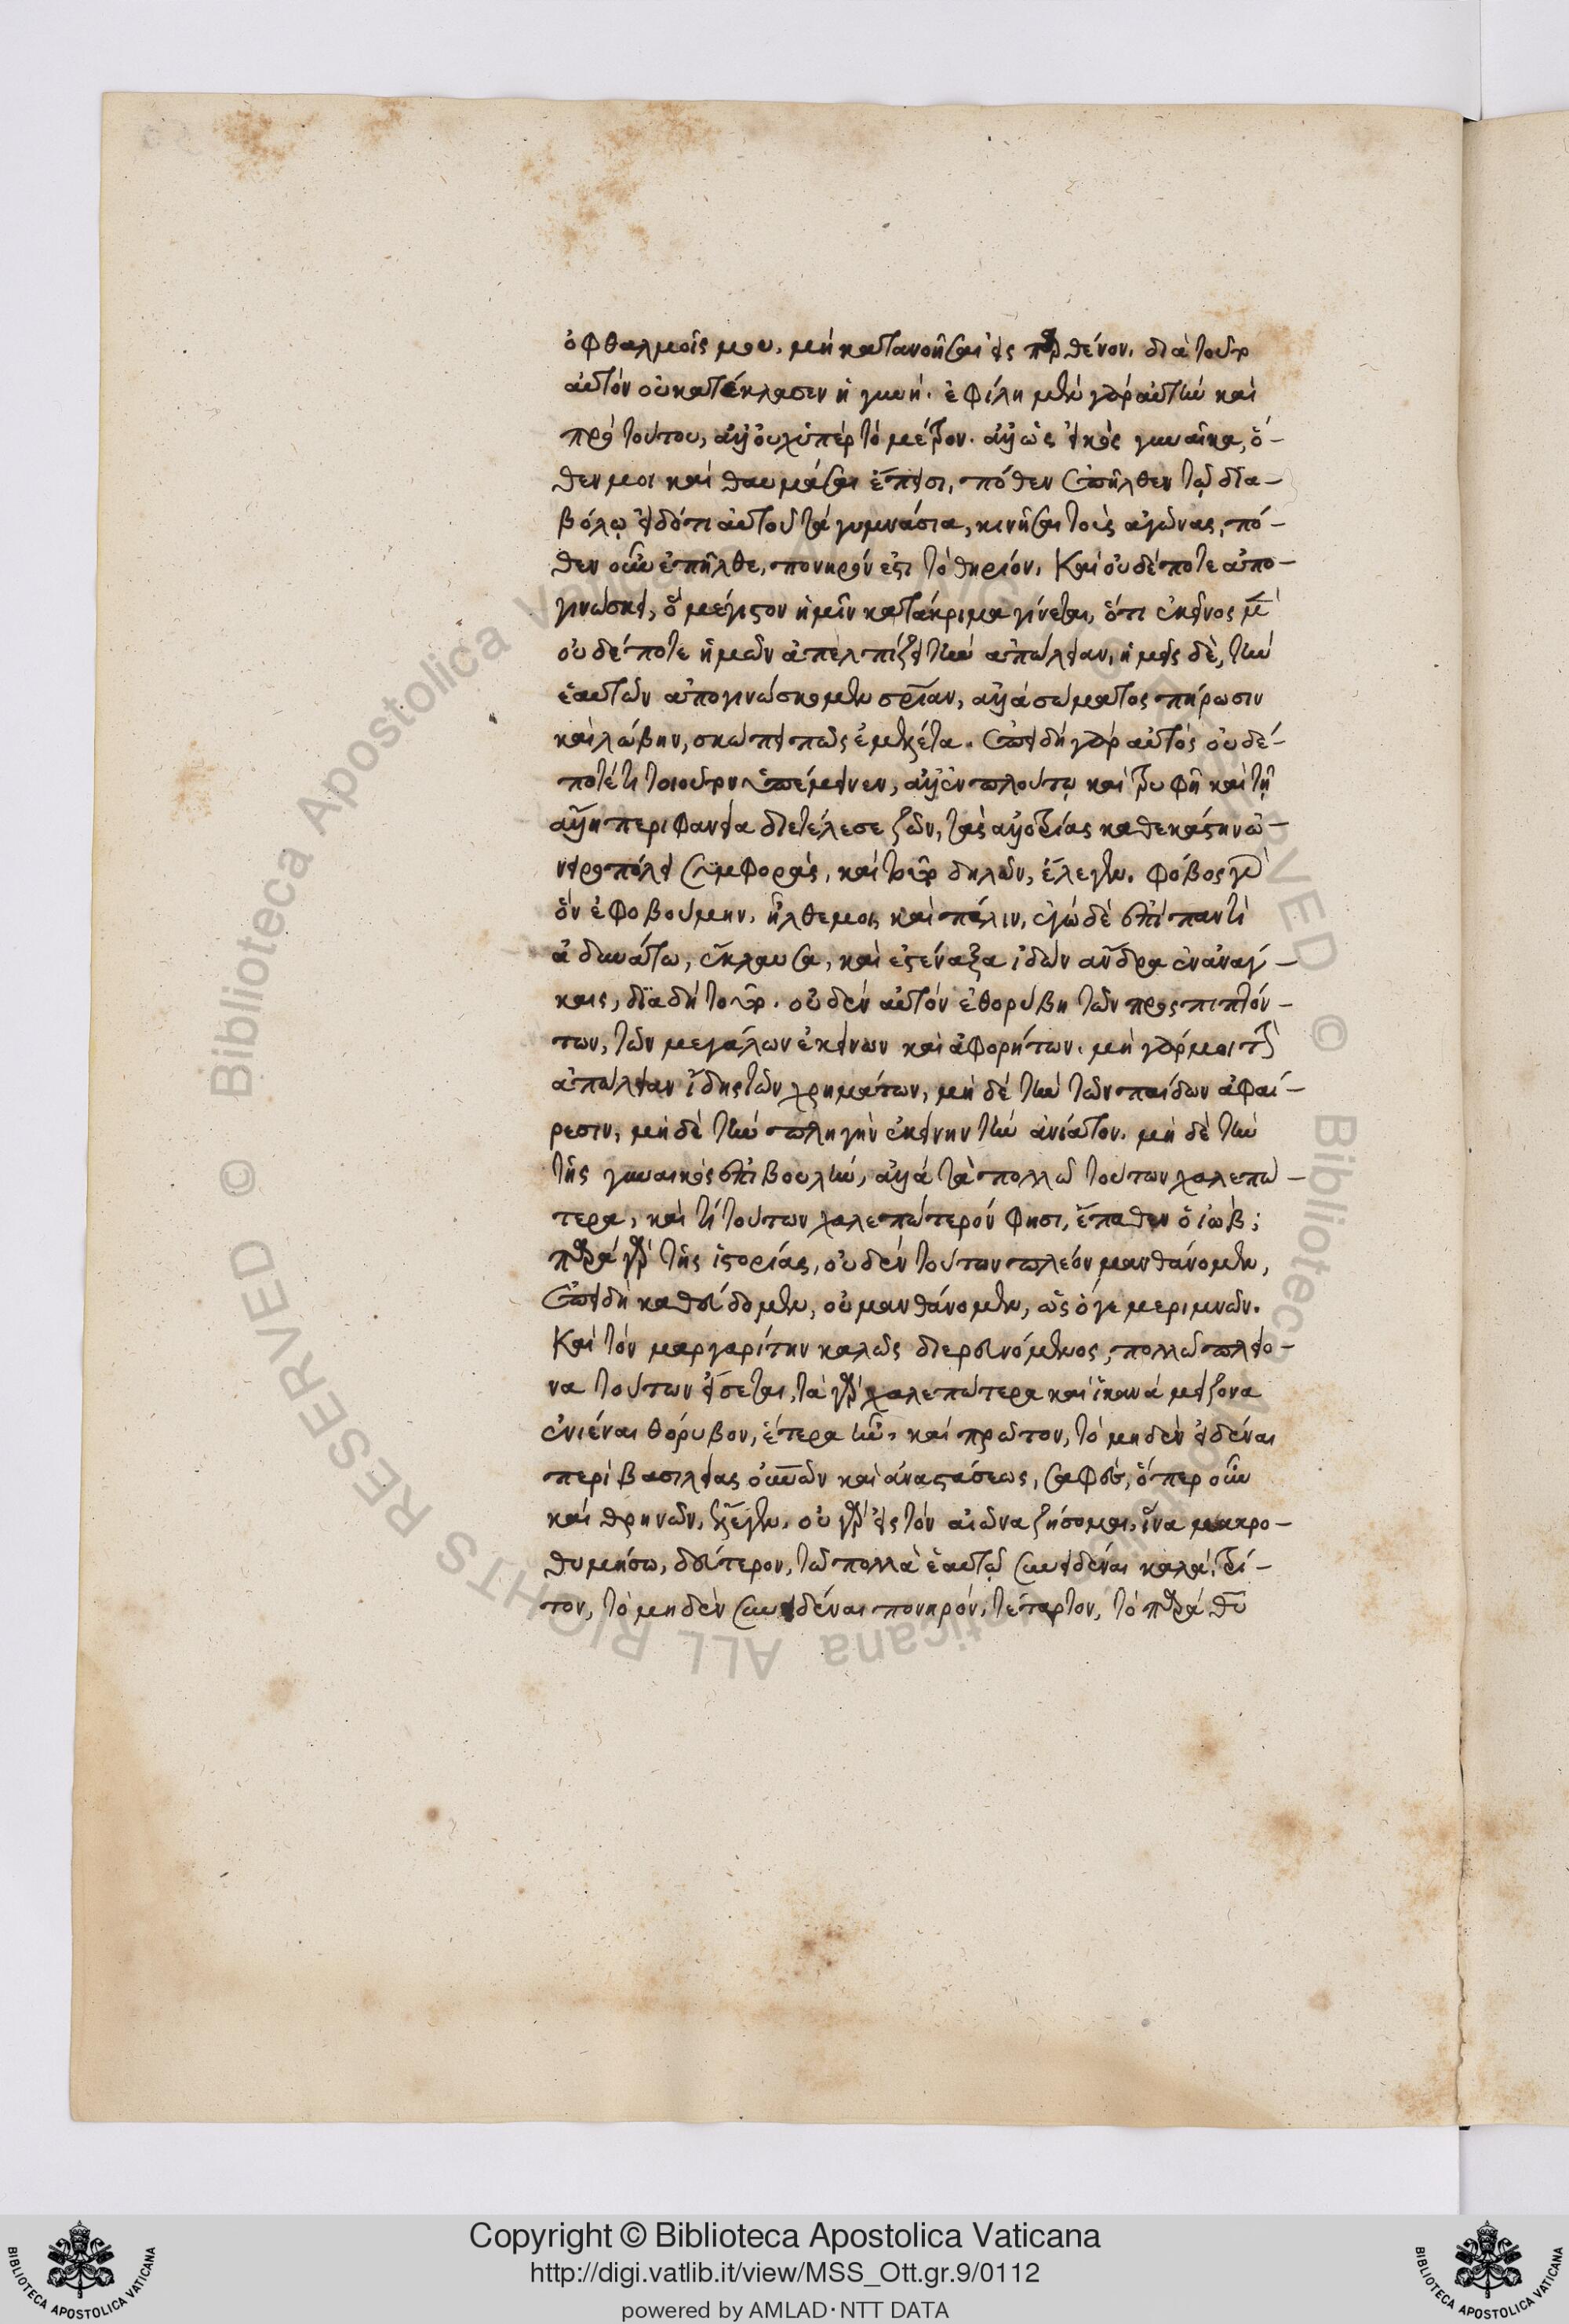 ὀφθαλμοῖς μου, μὴ κατανοῆσαι εἰς παρθένον. διὰ τοῦτο
αὐτὸν οὐ κατέκλασεν ἡ γυνή. ἐφίλη μὲν γὰρ αὐτὴν καὶ
πρὸ τούτου, ἀλλ' οὐχ ὑπὲρ τὸ μέτρον. ἀλλ' ὡς εἰκὸς γυναῖκα, ὅ-
θεν μοι καὶ θαυμάσαι ἔπεισι, πόθεν ἐπῆλθεν τῷ δια-
βόλῳ εἰδότι αὐτοῦ τὰ γυμνάσια, κινῆσαι τοὺς ἀγῶνας, πό-
θεν οὖν ἐπῆλθε, πονηρόν ἐστι τὸ θηρίον, Καὶ οὐδέποτε ἀπο-
γινώσκει, ὃ μέγιστον ἡμῖν κατάκριμα γίνεται, ὅτι ἐκεῖνος μὲν
οὐδέποτε ἡμῶν ἀπελπίζει τὴν ἀπώλειαν, ἡμεῖς δὲ, τὴν
ἑαυτῶν ἀπογινώσκομεν σρίαν, ἀλλὰ σώματος πήρωσιν
καὶ λώβην, σκώπει πῶς ἐμελέτα. ἐπειδὴ γὰρ αὐτὸς οὐδέ-
ποτέ τι τοιοῦτον ὑπέμεινεν, ἀλλ' ἐν πλούτῳ καὶ τρυφῇ καὶ τῇ
ἄλλῃ περιφανείᾳ διετέλεσε ζῶν, τὰς ἀλλοτρίας καθεκάστην ὠ-
νειροπόλει συμφορὰς, καὶ τοῦτο δηλῶν, ἔλεγεν. φόβος γὰρ
ὃν ἐφοβούμην, ἦλθε μοι, καὶ πάλιν, ἐγὼ δὲ ἐπὶ παντὶ
ἀδυνάτω, ἔκλαυσα, καὶ ἐστέναξα ἰδὼν ἄνδρα ἐν ἀνάγ-
καις, διαδὴ τοῦτο. οὐδὲν αὐτὸν ἐθορύβη τῶν προσπιπτόν-
των, τῶν μεγάλων ἐκείνων καὶ ἀφορήτων. μὴ γάρ μοι τὴν
ἀπώλειαν ἴδης τῶν χρημάτων, μὴ δὲ τὴν τῶν παίδων ἀφαί-
ρεσιν, μὴ δὲ τὴν πληγὴν ἐκείνην τὴν ἀνίατον. μὴ δὲ τὴν
τῆς γυναικὸς ἐπιβουλὴν, ἀλλὰ τὰ πολλῶ τούτων χαλεπώ-
τερα, καὶ τί τούτων χαλεπώτερόν φησι, ἔπαθεν ὁ ἰώβ;
παρὰ γὰρ τῆς ἱστορίας, οὐδὲν τούτων πλέον μανθάνομεν,
ἐπειδὴ καθεύδομεν, οὐ μανθάνομεν, ὡς ὅγε μεριμνῶν.
Καὶ τὸν μαργαρίτην καλῶς διερευνόμενος, πολλῶ πλείο-
να τούτων εἴσεται, τὰ γὰρ χαλεπώτερα καὶ ἱκανὰ μείζονα
ἐνιέναι θόρυβον, ἕτερα ἦν. καὶ πρῶτον, τὸ μηδὲν εἰδέναι
περὶ βασιλείας οὐνῶν καὶ ἀναστάσεως, σαφὲς, ὅπερ οὖν
καὶ θρηνῶν, ἔλεγεν. οὐ γὰρ εἰς τὸν αἰῶνα ζήσομαι, ἵνα μακρο-
θυμήσω, δεύτερον, τῶ πολλὰ ἑαυτῷ συνειδέναι καλά, τρί-
τον, τὸ μηδὲν συνειδέναι πονηρόν, τέταρτον, τὸ παρὰ θυ
Copyright © Biblioteca Apostolica Vaticana
http://digi.vatlib.it/view/MSS_Ott.gr.9/0112
powered by AMLAD·NTT DATA